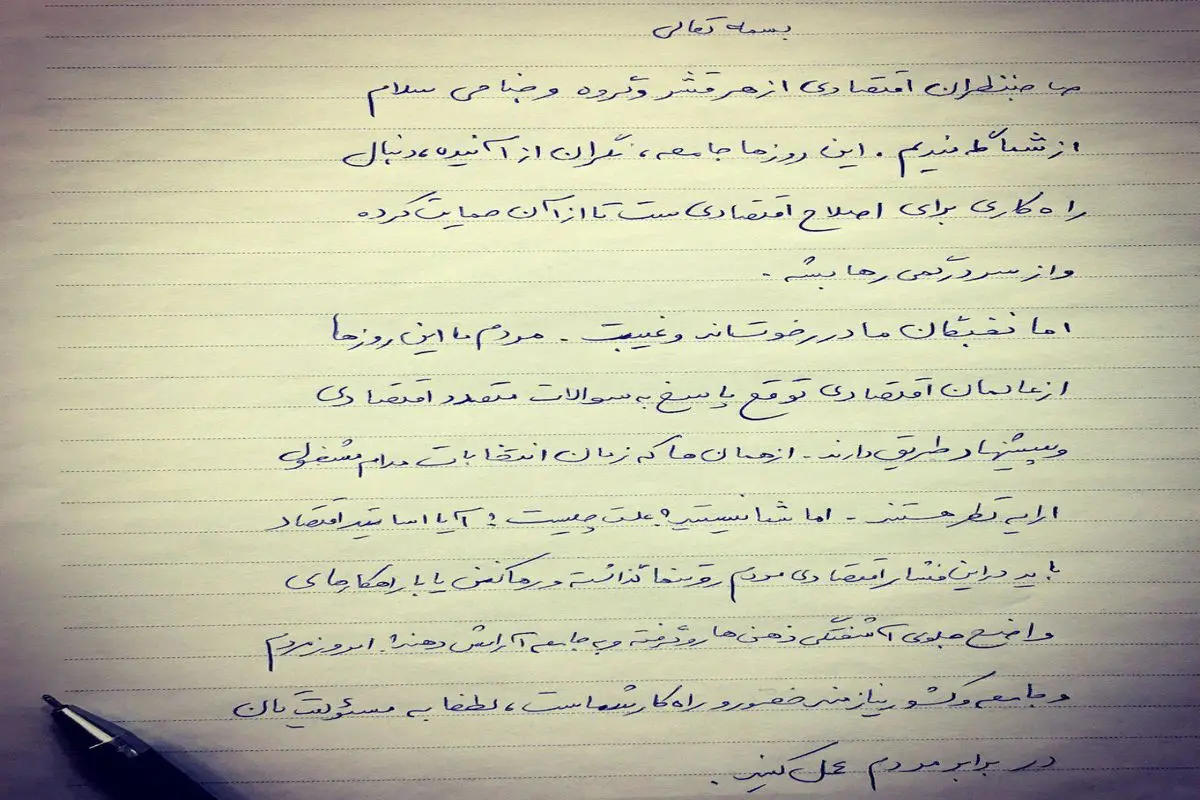 بسمه تعالی
صاحبنظران اقتصادی از هر قشر و گروه و جناحی سلام
از شما گله مندیم . این روزها جامعه ، نگران از آینده ، دنبال
راه کاری برای اصلاح اقتصادی ست تا از آن حمایت کرده
و از سردرگمی رها بشه .
اما نخبگان ما در رخوت اند و غیبت . مردم ما این روزها
از عالمان اقتصادی توقع پاسخ به سوالات متعدد اقتصادی
و پیشنهاد طریق دارند . از همان ها که زمان انتخابات مدام مشغول
ارایه نظر هستند . اما شما نیستید ؟ علت چیست ؟ آیا اساتید اقتصاد
باید در این فشار اقتصادی مردم رو تنها گذاشته و رها کنن یا با راهکارهای
واضح جلوی آشفتگی ذهن ها رو گرفته و به جامعه آرامش دهند ؟ امروز مردم
و جامعه و کشور نیازمند حضور و راه کار شماست ، لطفا به مسئولیت تان
در برابر مردم عمل کنید .